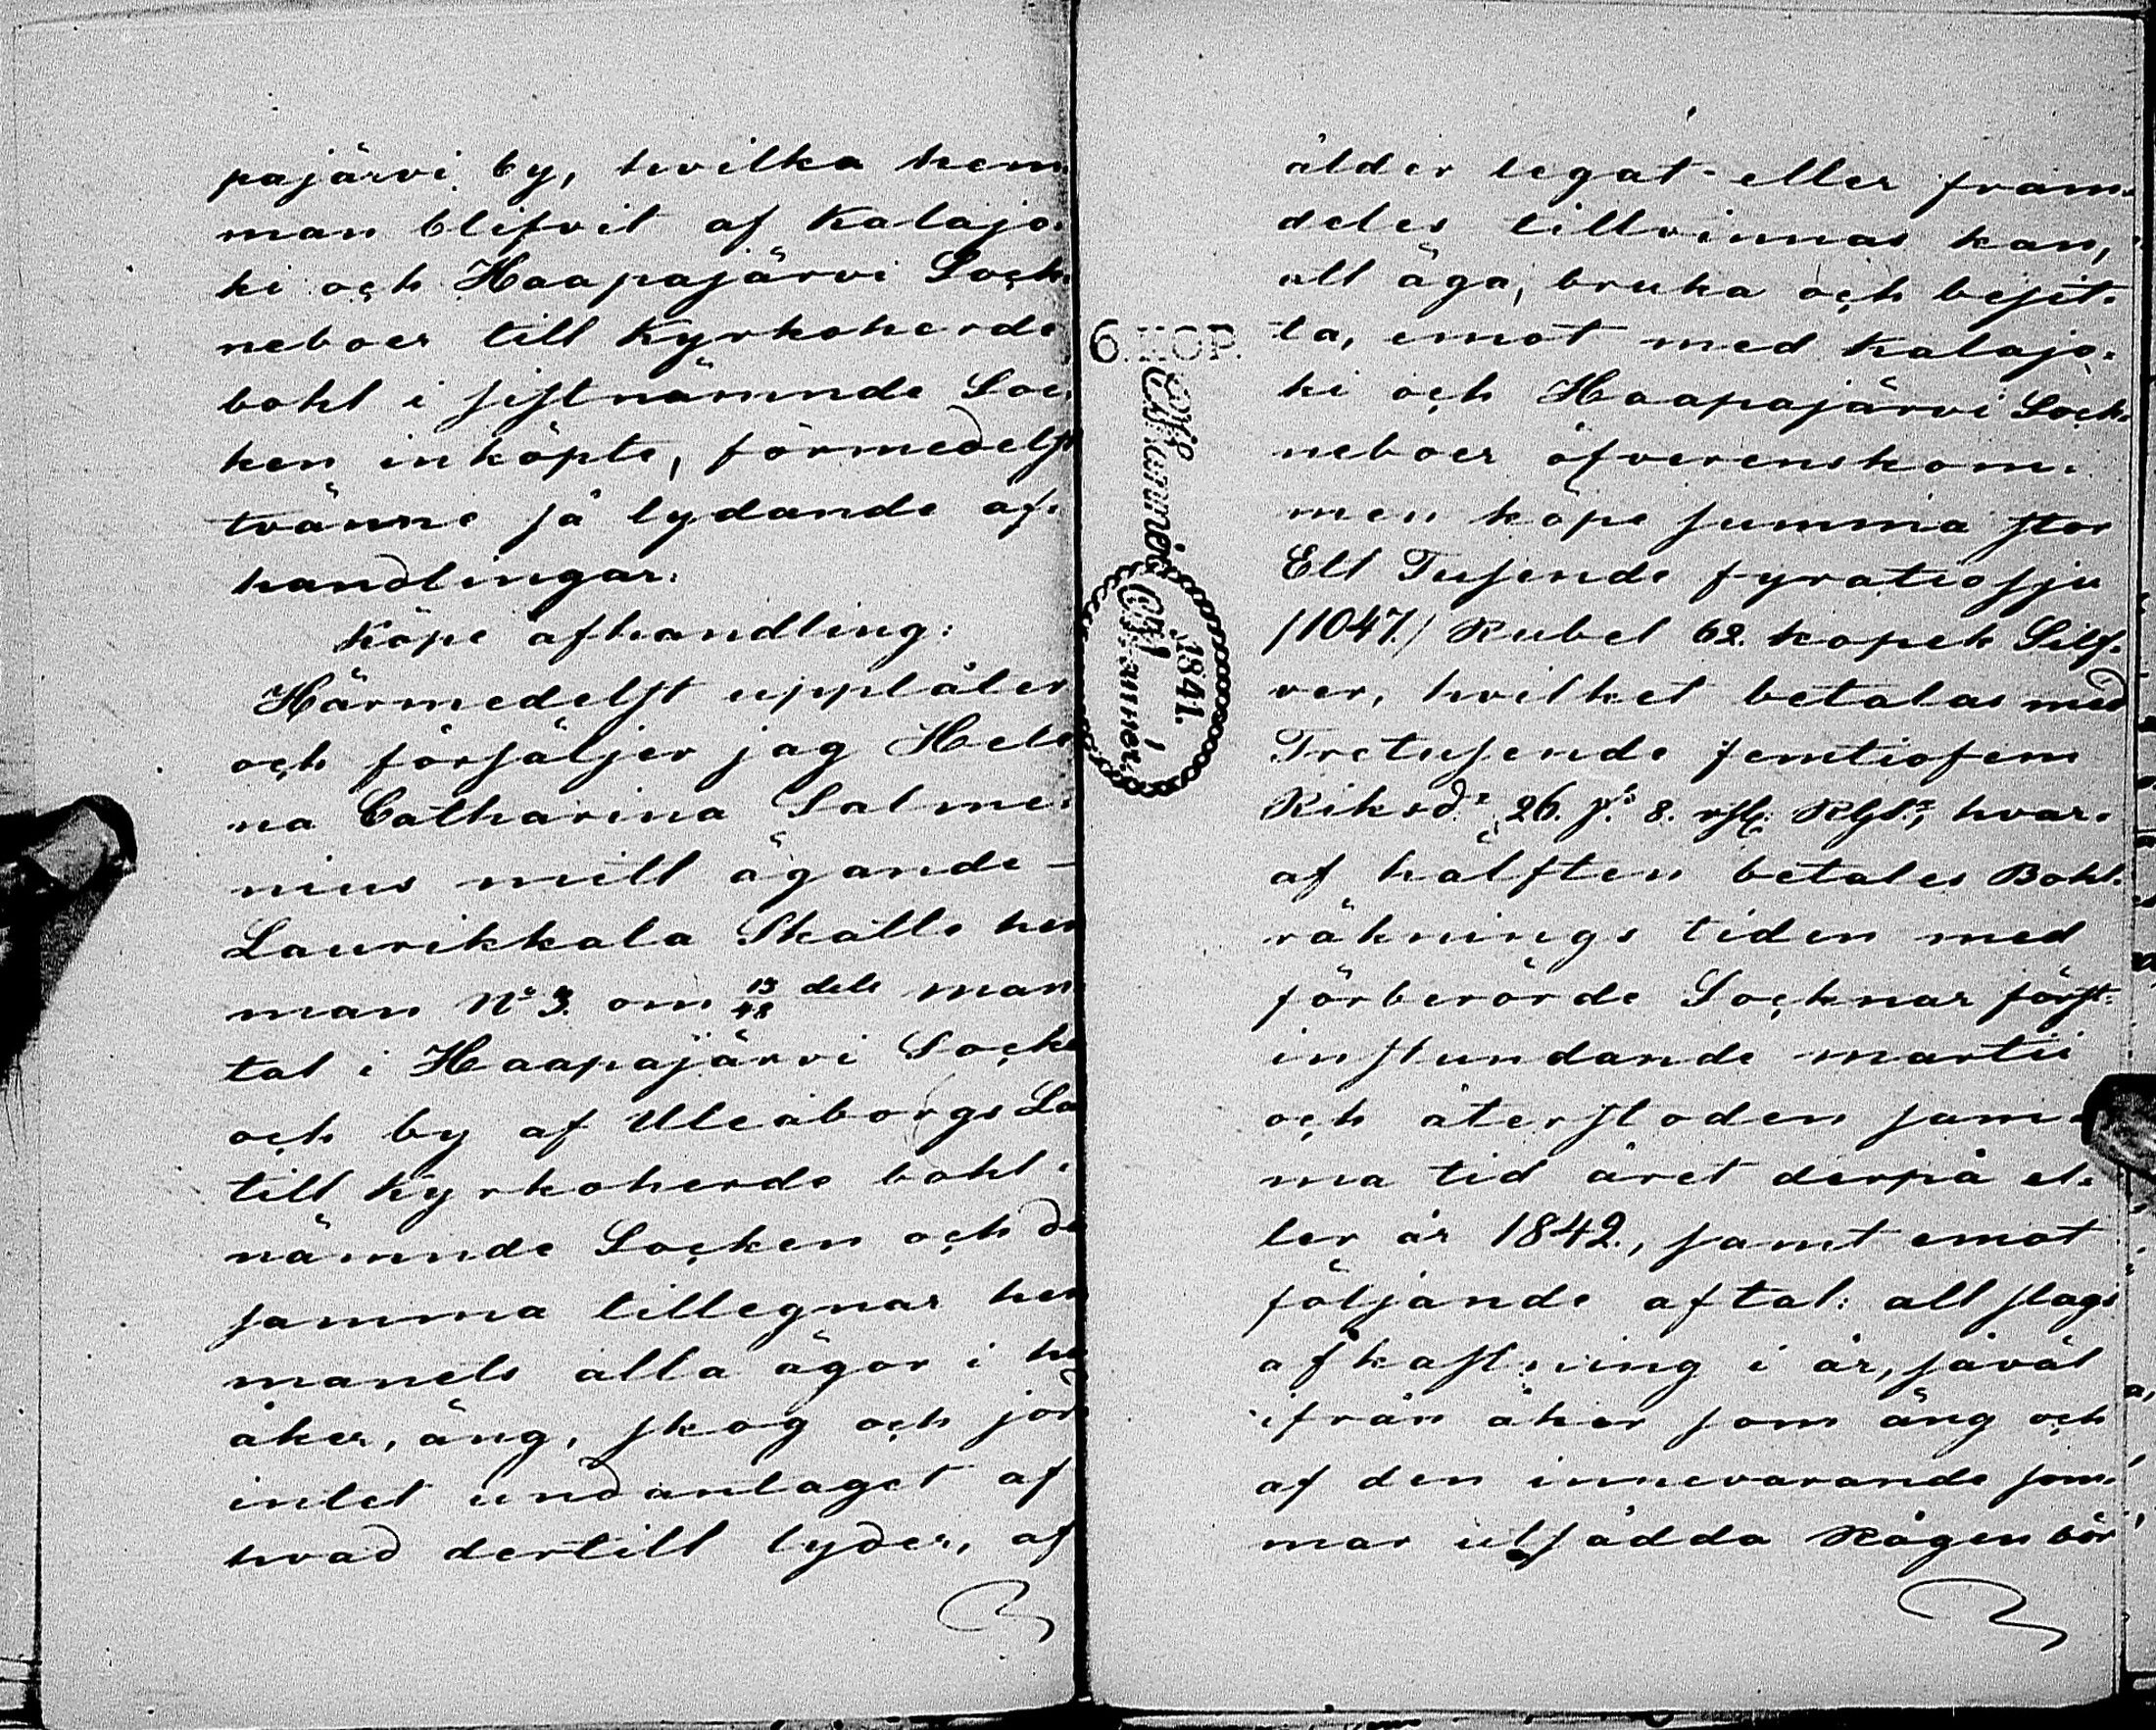 pajärvi by, hvilka hem-
man blifvit af Kalajo-
ki och Haapajärvi Sock-
neboer till Kyrkoherde
bohl i sistnämnde Soc-
ken inköpte, förmedelst
tvänne så lydande af-
handlingar:
Köpe afhandling:
Härmedelst upplåter
och försäljer jag Hele
na Catharina Salme-
nius mitt ägande-
Laurikkala Skatte hem
man No 3. om 13/48 dels man
tal i Haapajärvi Socken
och by af Uleåborgs Lä
till Kyrkoherde bohl i
nämnde Socken och de
samma tillegnar hem
manets alla ägor i hu
åker, äng, skog och jord
intet undantaget af
hvad dertill lyder, af
6. KOP.
1841.
ålder legat eller fram-
deles tillvinnas kan,
att äga, bruka och besit-
ta, emot med Kalajo-
ki och Haapajärvi Sock-
neboer öfverenskom-
men köpe summa stor
Ett Tusende fyratiosju
/1047./ Rubel 62. kopek Silf-
ver, hvilket betalas med
Tretusende femtiofem
Riksdr 26. s. 8. rst. Rgs., hvar-
af hälften betales Bohl-
räknings tiden med
förberörde Socknar först-
instundande martii
och återstoden sam-
ma tid året derpå el-
ler år 1842., samt emot
följande aftal: allslags
afkastning i år, såväl
ifrån åker som äng och
af den innevarande som-
mar utsådda Rågen bör